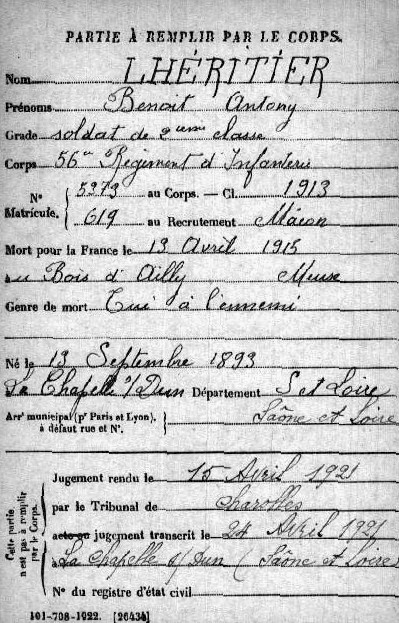 PARTIE À REMPLIR PAR LE CORPS.
Nom LHÉRITIER
Prénoms Benoit Antony
Grade soldat de 2ième classe
Corps 56e Régiment d'Infanterie
N° Matricule. { 5273 au Corps. — Cl. 1913
619 au Recrutement Mâcon
Mort pour la France le 13 Avril 1915
au Bois d'Ailly Meuse
Genre de mort Tué à l'ennemi
Né le 13 Septembre 1893
La Chapelle s/Dun Département S et Loire
Arrt municipal (pr Paris et Lyon), à défaut rue et N°. { Saône et Loire
Cette partie n'est pas à remplir par le Corps.
Jugement rendu le 15 Avril 1921
par le Tribunal de Charolles
acte ou jugement transcrit le 24 Avril 1921
à La Chapelle s/Dun (Saône et Loire)
N° du registre d'état civil
101-708-1922. [26434]